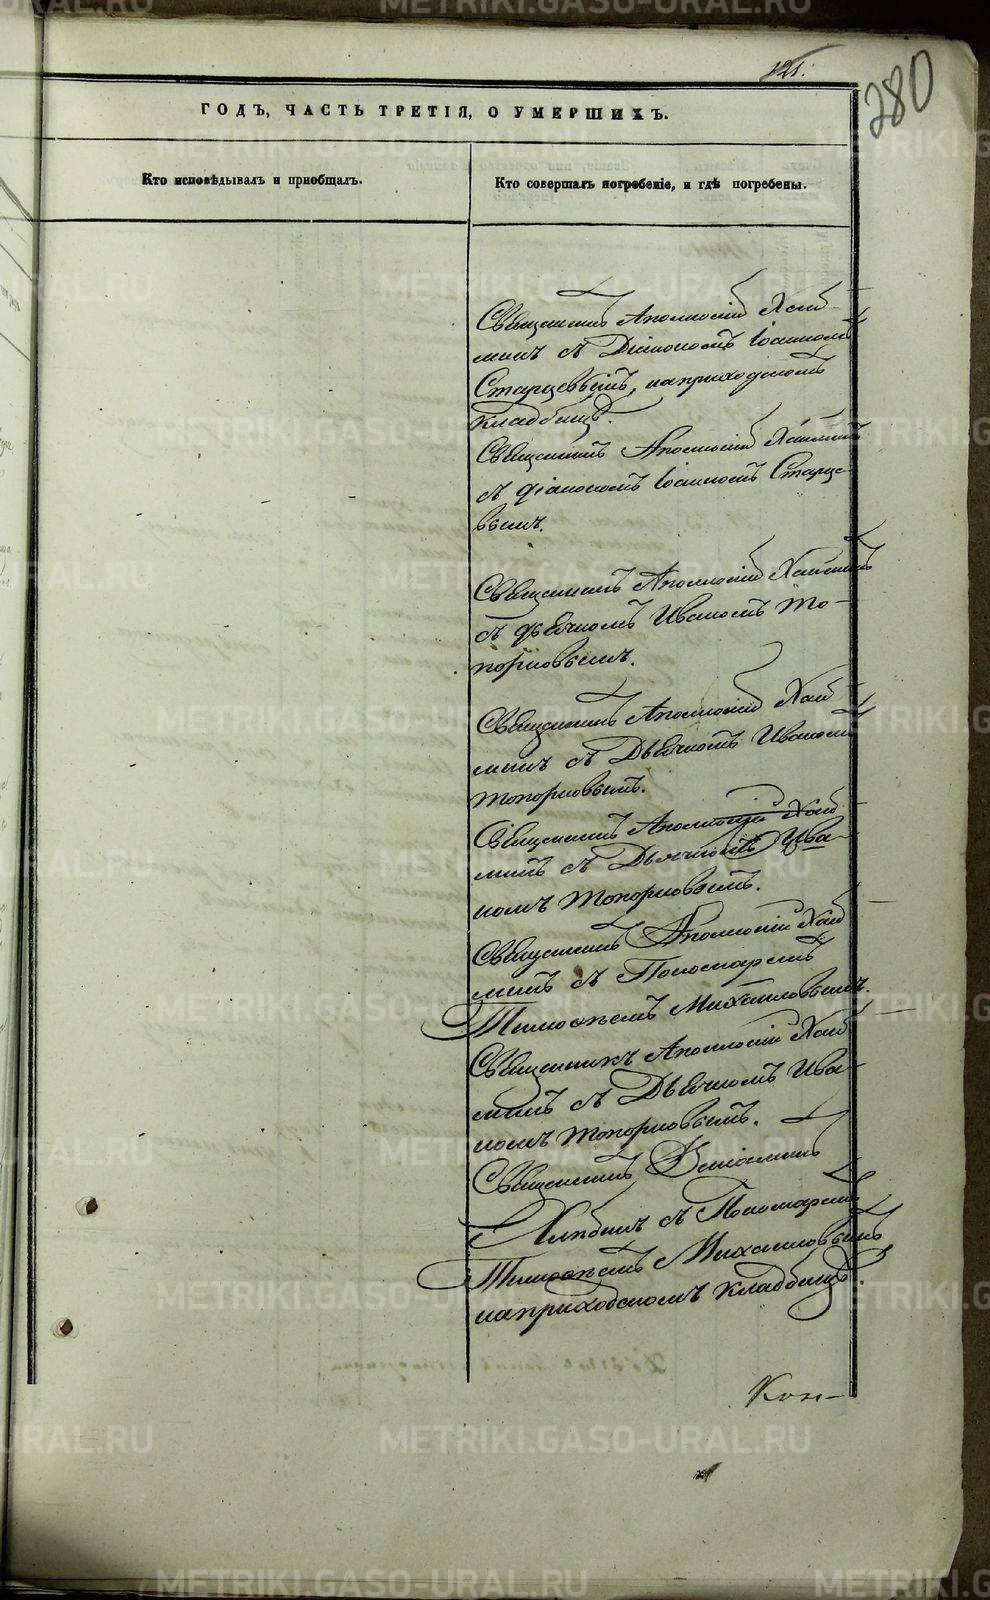 121.
280
ГОДЪ, ЧАСТЬ ТРЕТІЯ, О УМЕРШИХЪ.
Кто исповѣдывалъ и пріобщалъ.
Кто совершалъ погребеніе, и гдѣ погребены.
Священникъ Аполлосій Хлы-
нинъ съ Діакономъ Іоанномъ
Старцевымъ, на приходскомъ
кладбищѣ.
Священникъ Аполлосій
съ діакономъ Іоанномъ Старце-
вымъ.
Священникъ Аполлосій
съ дьячкомъ Иваномъ То-
порковымъ.
Священникъ Аполлосій
съ Дьячкомъ Иваномъ
Топорковымъ.
Священникъ Аполлосій
съ Дьячкомъ Ива-
номъ Топорковымъ.
Священникъ Аполлосій
съ Пономаремъ
Тимофеемъ Михайловымъ.
Священникъ Аполлосій
съ Дьячкомъ Ива-
номъ Топорковымъ.
Священникъ Веніаминъ
съ Пономаремъ
Тимофеемъ Михайловымъ
на приходскомъ кладбищѣ
Кол-
METRIKI.GASO-URAL.RU